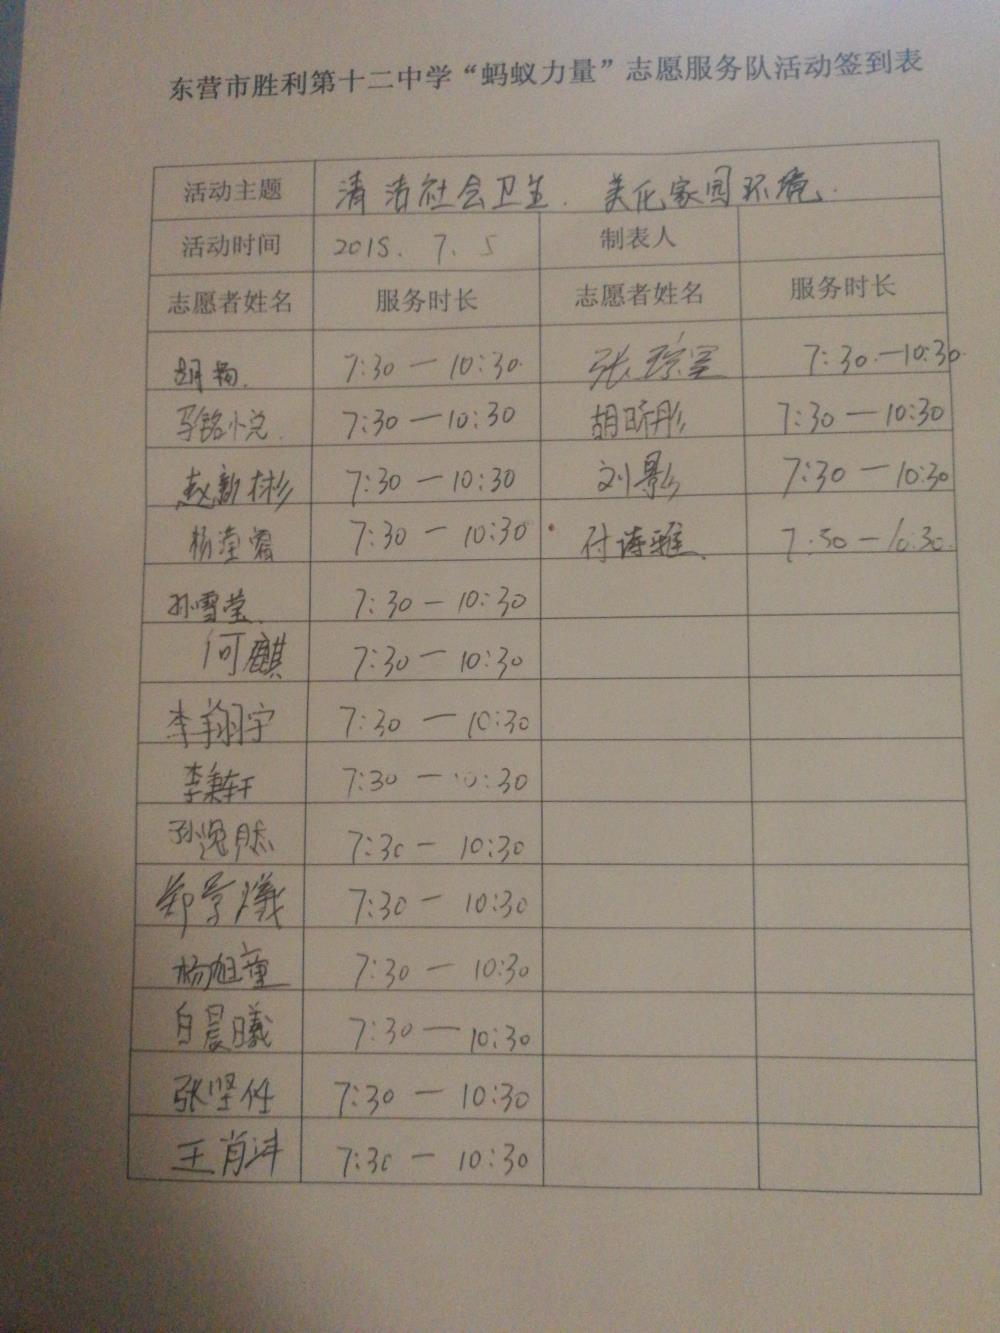 东营市胜利第十二中学“蚂蚁力量”志愿服务队活动签到表
活动主题 清洁社会卫生. 美化家园环境.
活动时间 2018. 7. 5 制表人
志愿者姓名 服务时长 志愿者姓名 服务时长
7:30 — 10:30. 张琮昊 7:30.—10:30.
7:30 — 10:30 胡昕彤 7:30 — 10:30
赵新彬 7:30 — 10:30 刘影 7:30 — 10:30
7:30 — 10:30 付诗雅. 7:30 — 10:30.
孙雪莹. 7:30 — 10:30
何麒 7:30 — 10:30
李翔宇 7:30 — 10:30
李秉轩 7:30 — 10:30
7:30 — 10:30
郑景曦 7:30 — 10:30
杨旭童 7:30 — 10:30
白晨曦 7:30 — 10:30
张坚任 7:30 — 10:30
王肖沣 7:30 — 10:30